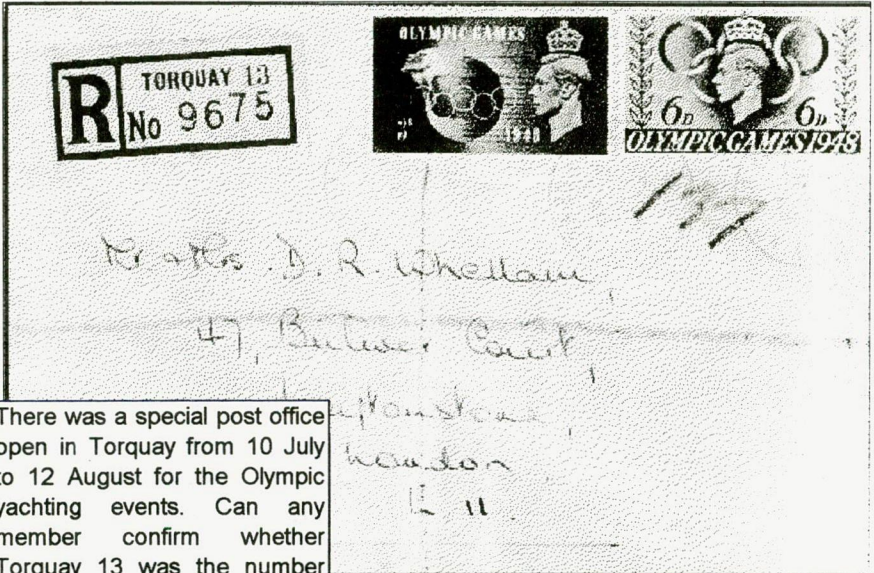 R TORQUAY 13
No 9675
OLYMPIC GAMES
1948
6D 6D
OLYMPIC GAMES 1948
137
Mr & Mrs. D. R. Whellam,
47, Court,
London
E 11.
There was a special post office
open in Torquay from 10 July
to 12 August for the Olympic
yachting events. Can any
member confirm whether
Torquay 13 was the number